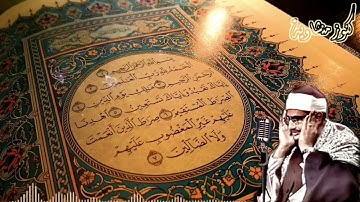 كنوز منشاوية
بسم الله الرحمن الرحيم
الحمد لله رب العالمين
الرحمن الرحيم مالك يوم الدين
إياك نعبد وإياك نستعين اهدنا
الصراط المستقيم صراط الذين أنعمت
عليهم غير المغضوب عليهم
ولا الضالين